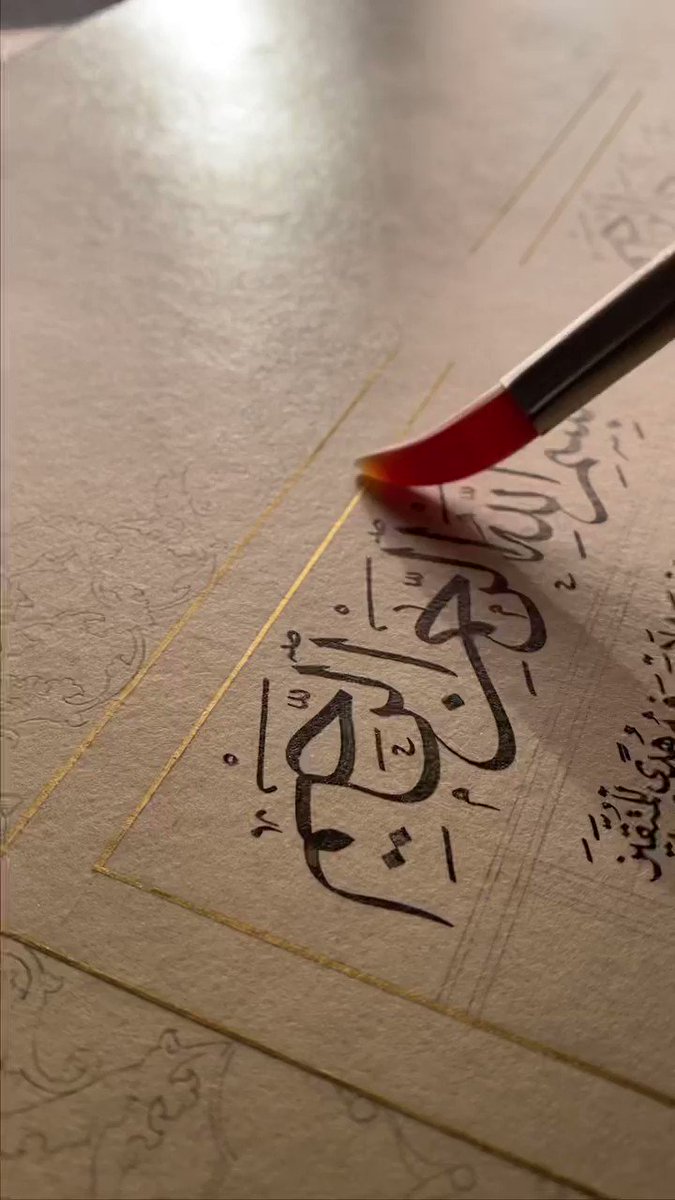 بِسْمِ اللّٰهِ الرَّحْمٰنِ الرَّحِيمِ
هُدًى لِلْمُتَّقِينَ